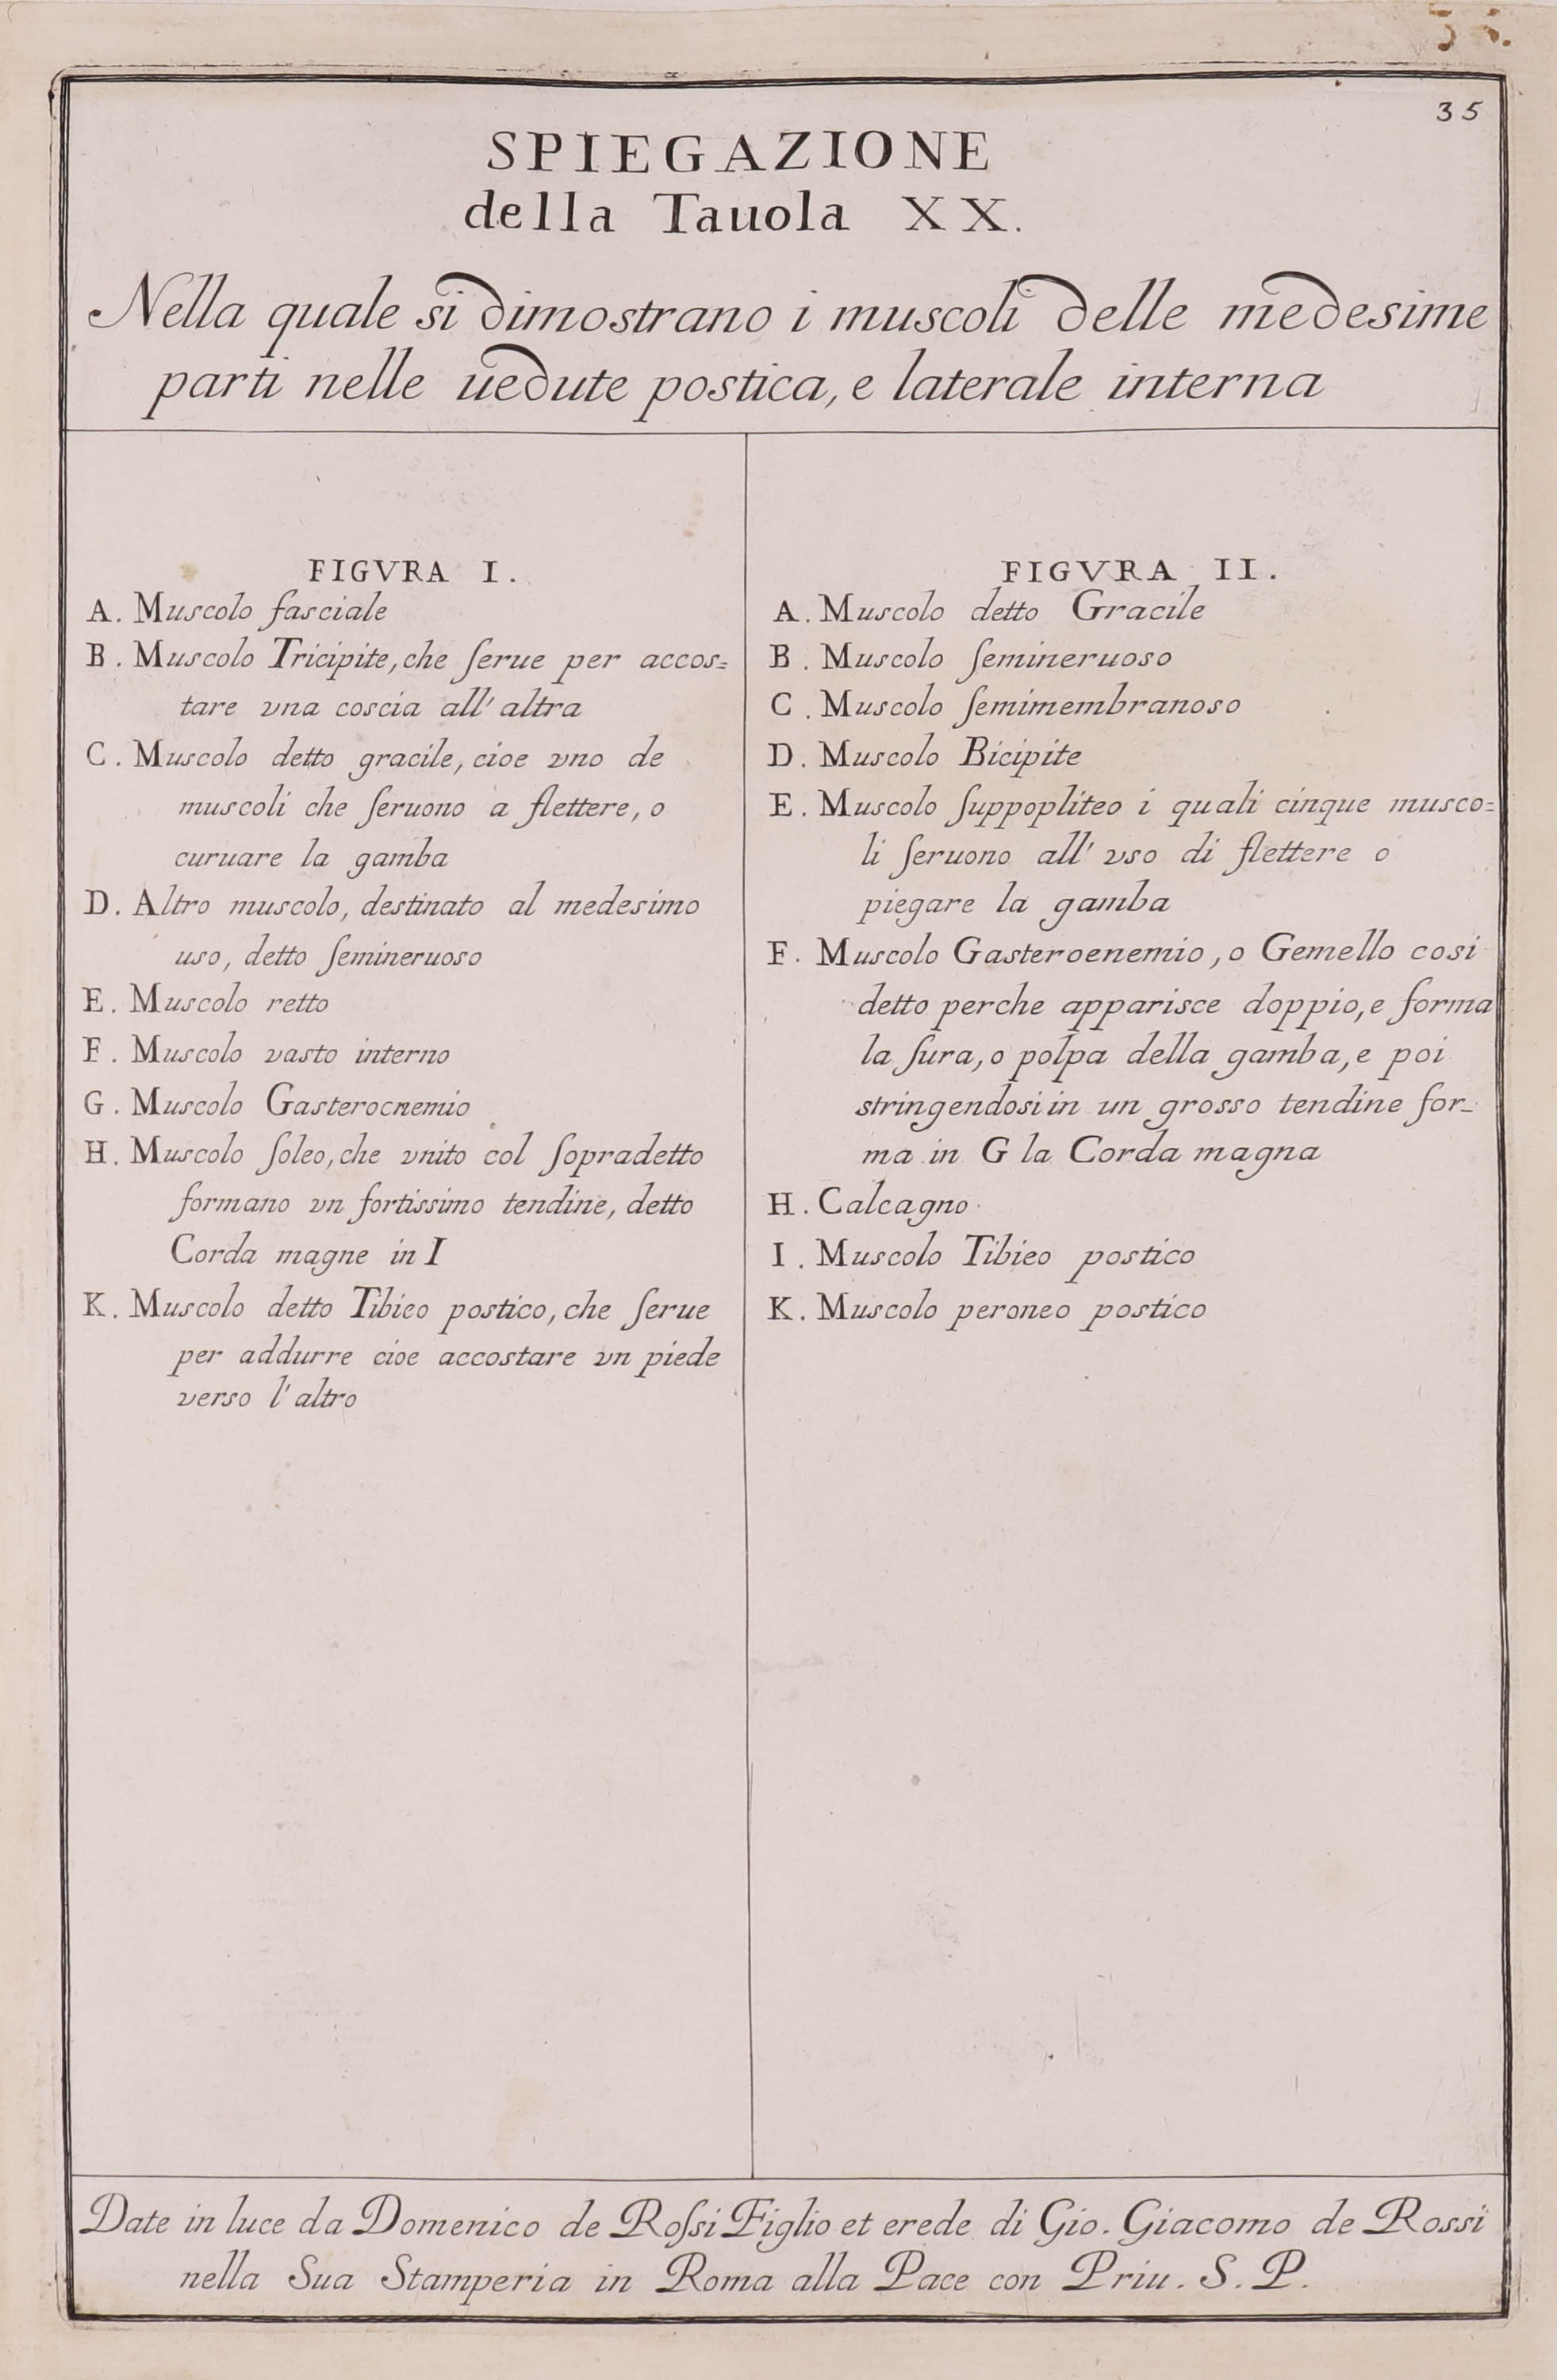 35
SPIEGAZIONE
della Tauola XX.
Nella quale si dimostrano i muscoli delle medesime
parti nelle uedute postica, e laterale interna
FIGVRA I.
A. Muscolo fasciale
B. Muscolo Tricipite, che ſerue per accos=
tare vna coscia all' altra
C. Muscolo detto gracile, cioe vno de
muscoli che ſeruono à flettere, o
curuare la gamba
D. Altro muscolo, destinato al medesimo
uso, detto ſemineruoso
E. Muscolo retto
F. Muscolo vasto interno
G. Muscolo Gasterocnemio
H. Muscolo ſoleo, che vnito col ſopradetto
formano vn fortissimo tendine, detto
Corda magne in I
K. Muscolo detto Tibieo postico, che ſerue
per addurre cioe accostare vn piede
verso l' altro
FIGVRA II.
A. Muscolo detto Gracile
B. Muscolo ſemineruoso
C. Muscolo ſemimembranoso
D. Muscolo Bicipite
E. Muscolo ſuppopliteo i quali cinque musco=
li ſeruono all' vso di flettere o
piegare la gamba
F. Muscolo Gasteroenemio, o Gemello cosi
detto perche apparisce doppio, e forma
la ſura, o polpa della gamba, e poi
stringendosi in un grosso tendine for_
ma in G la Corda magna
H. Calcagno
I. Muscolo Tibieo postico
K. Muscolo peroneo postico
Date in luce da Domenico de Roſsi Figlio et erede di Gio. Giacomo de Rossi
nella Sua Stamperia in Roma alla Pace con Priu. S. P.